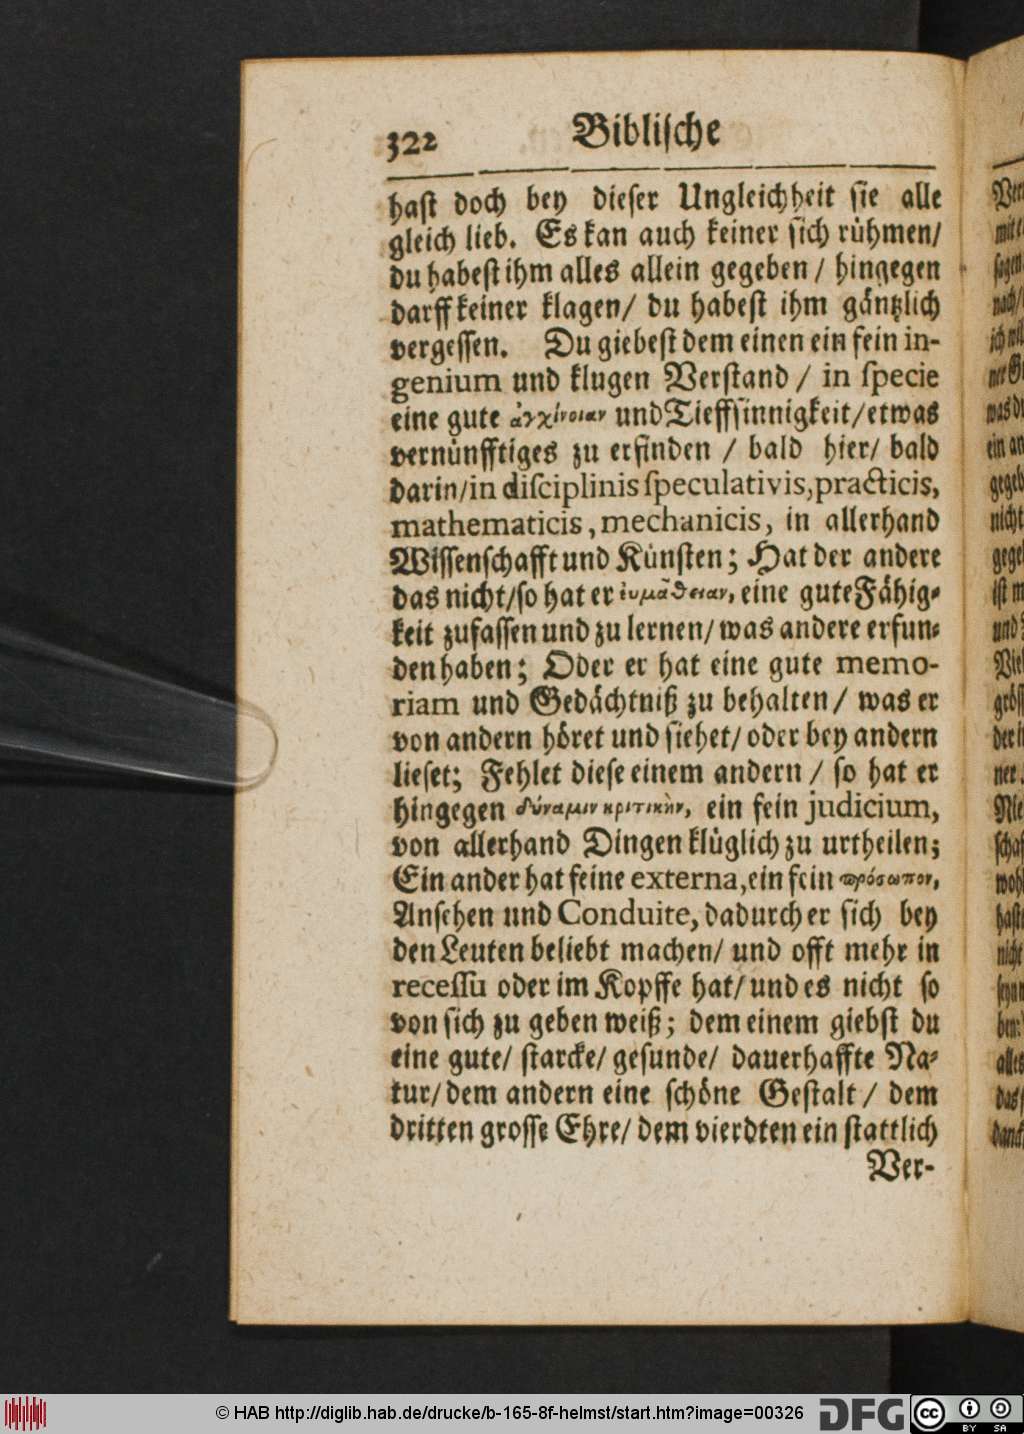 322 Biblische
hast doch bey dieser Ungleichheit sie alle
gleich lieb. Es kan auch keiner sich rühmen/
du habest ihm alles allein gegeben / hingegen
darff keiner klagen/ du habest ihm gäntzlich
vergessen. Du giebest dem einen ein fein in-
genium und klugen Verstand / in specie
eine gute ἀγχίνοιαν und Tieffsinnigkeit/etwas
vernünfftiges zu erfinden / bald hier/ bald
darin/in disciplinis speculativis, practicis,
mathematicis, mechanicis, in allerhand
Wissenschafft und Künsten; Hat der andere
das nicht/so hat er ἐυμάθειαν, eine gute Fähig-
keit zufassen und zu lernen/ was andere erfun-
den haben; Oder er hat eine gute memo-
riam und Gedächtniß zu behalten/ was er
von andern höret und siehet/ oder bey andern
lieset; Fehlet diese einem andern / so hat er
hingegen δύναμιν κριτικὴν, ein fein judicium,
von allerhand Dingen klüglich zu urtheilen;
Ein ander hat feine externa, ein fein πρόσωπον,
Ansehen und Conduite, dadurch er sich bey
den Leuten beliebt machen/ und offt mehr in
recessu oder im Kopffe hat/ und es nicht so
von sich zu geben weiß; dem einem giebst du
eine gute/ starcke/ gesunde/ dauerhaffte Na-
tur/ dem andern eine schöne Gestalt / dem
dritten grosse Ehre/ dem vierdten ein stattlich
Ver-
© HAB http://diglib.hab.de/drucke/b-165-8f-helmst/start.htm?image=00326
DFG
cc BY SA